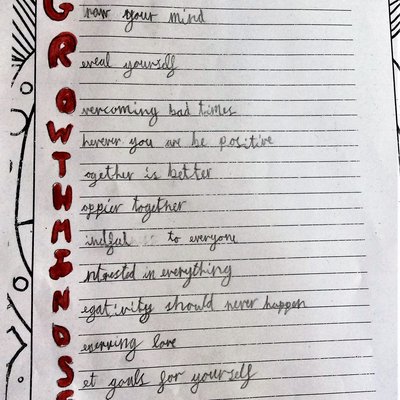 Grow your mind
Reveal yourself
Overcoming bad times
Wherever you are be positive
Together is better
Happier together
Mindful to everyone
Intrested in everything
Negativity should never happen
Deserving love
Set goals for yourself